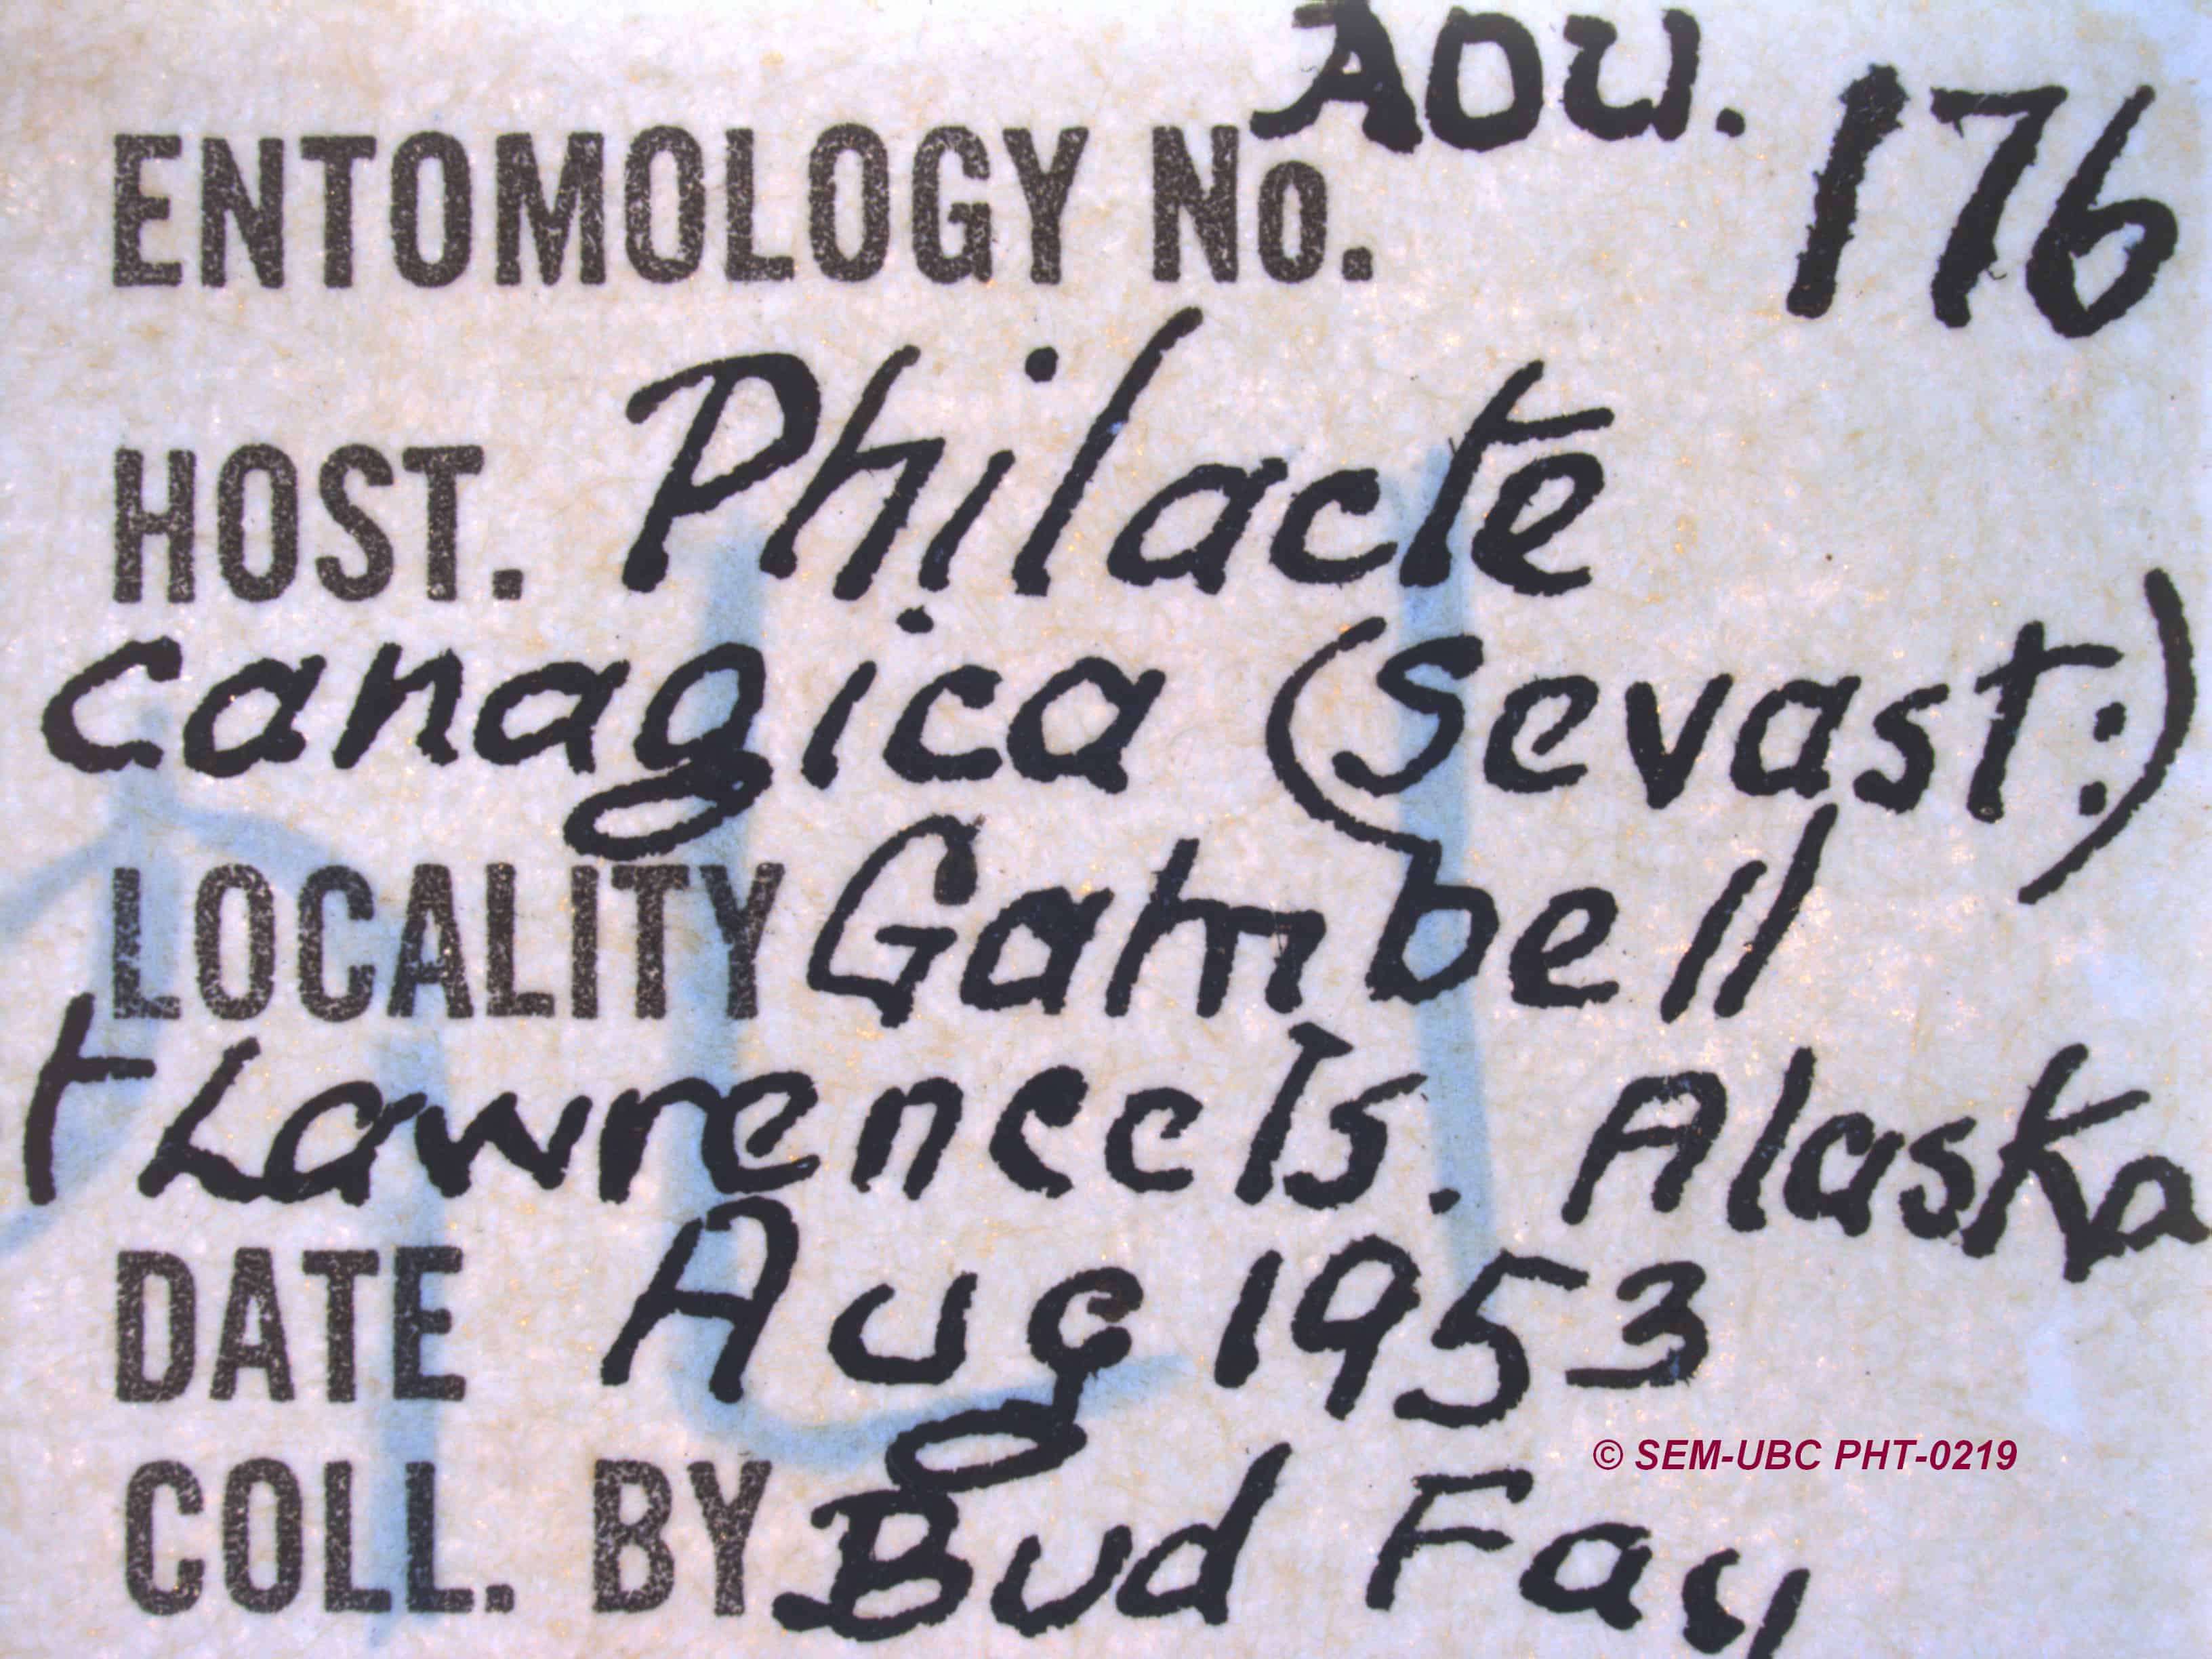 AOU.
ENTOMOLOGY No. 176
HOST. Philacte
canagica (Sevast:)
LOCALITY Gambell
t Lawrence Is. Alaska
DATE Aug 1953
© SEM-UBC PHT-0219
COLL. BY Bud Fay